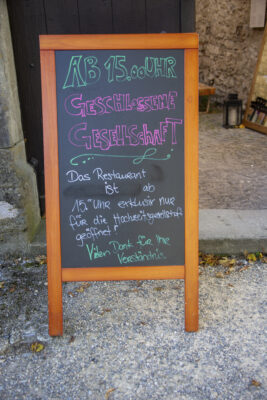 AB 15.00 UHR
GESCHLOSSENE
GESELLSCHAFT
Das Restaurant
ist ab
15.00 Uhr exklusiv nur
für die Hochzeitsgesellschaft
geöffnet!
Vielen Dank für Ihr
Verständnis.